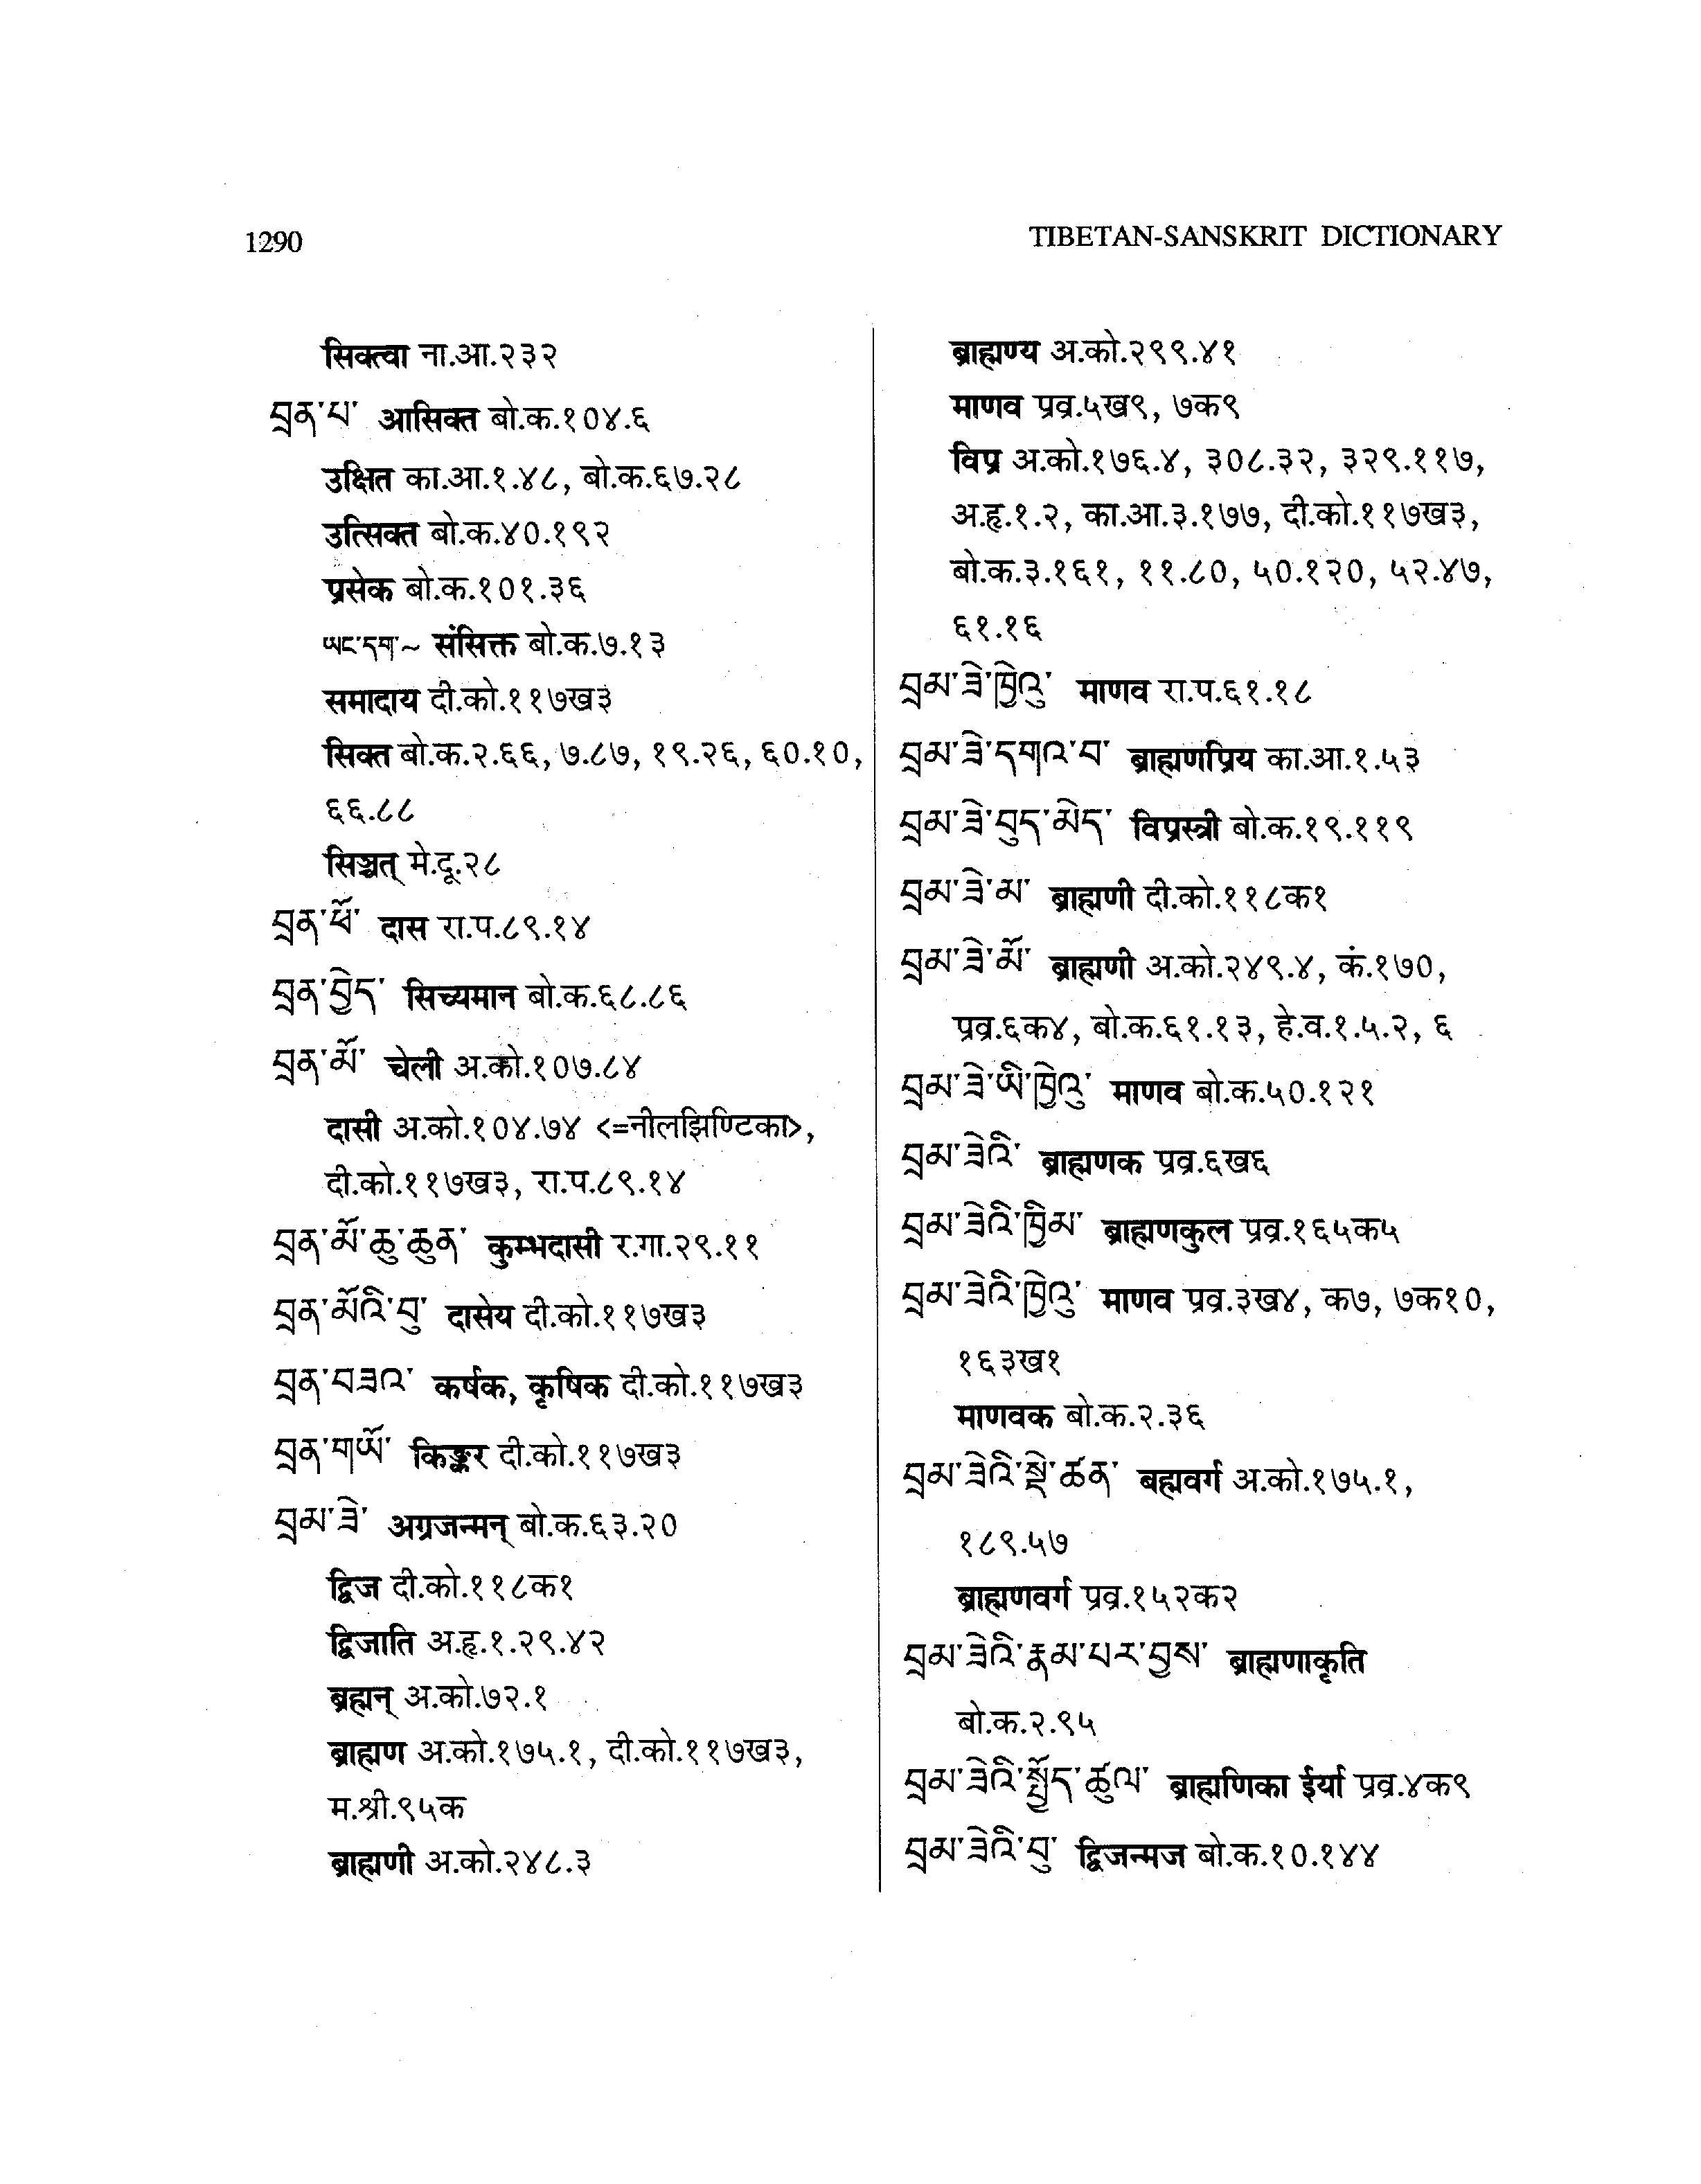 1290
TIBETAN-SANSKRIT DICTIONARY
सिक्त्वा ना.आ.२३२
བྲན་པ་ आसिक्त बो.क.१०४.६
उक्षित का.आ.१.४८, बो.क.६७.२८
उत्सिक्त बो.क.४०.१९२
प्रसेक बो.क.१०१.३६
ཡང་དག་~ संसिक्त बो.क.७.१३
समादाय दी.को.११७ख३
सिक्त बो.क.२.६६, ७.८७, १९.२६, ६०.१०,
६६.८८
सिञ्चत् मे.दू.२८
བྲན་ཕོ་ दास रा.प.८९.१४
བྲན་བྱེད་ सिच्यमान बो.क.६८.८६
བྲན་མོ་ चेली अ.को.१०७.८४
दासी अ.को.१०४.७४ <=नीलझिण्टिका>,
दी.को.११७ख३, रा.प.८९.१४
བྲན་མོ་ཆུ་ཆུན་ कुम्भदासी र.गा.२९.११
བྲན་མོའི་བུ་ दासेय दी.को.११७ख३
བྲན་བཟའ་ कर्षक, कृषिक दी.को.११७ख३
བྲན་གཡོ་ किङ्कर दी.को.११७ख३
བྲམ་ཟེ་ अग्रजन्मन् बो.क.६३.२०
द्विज दी.को.११८क१
द्विजाति अ.हृ.१.२९.४२
ब्रह्मन् अ.को.७२.१
ब्राह्मण अ.को.१७५.१, दी.को.११७ख३,
म.श्री.९५क
ब्राह्मणी अ.को.२४८.३
ब्राह्मण्य अ.को.२९९.४१
माणव प्रव्र.५ख९, ७क९
विप्र अ.को.१७६.४, ३०८.३२, ३२९.११७,
अ.हृ.१.२, का.आ.३.१७७, दी.को.११७ख३,
बो.क.३.१६१, ११.८०, ५०.१२०, ५२.४७,
६१.१६
བྲམ་ཟེ་ཁྱེའུ་ माणव रा.प.६१.१८
བྲམ་ཟེ་དགའ་བ་ ब्राह्मणप्रिय का.आ.१.५३
བྲམ་ཟེ་བུད་མེད་ विप्रस्त्री बो.क.१९.११९
བྲམ་ཟེ་མ་ ब्राह्मणी दी.को.११८क१
བྲམ་ཟེ་མོ་ ब्राह्मणी अ.को.२४९.४, कं.१७०,
प्रव्र.६क४, बो.क.६१.१३, हे.व.१.५.२, ६
བྲམ་ཟེ་ཡི་ཁྱེའུ་ माणव बो.क.५०.१२१
བྲམ་ཟེའི་ ब्राह्मणक प्रव्र.६ख६
བྲམ་ཟེའི་ཁྱིམ་ ब्राह्मणकुल प्रव्र.१६५क५
བྲམ་ཟེའི་ཁྱེའུ་ माणव प्रव्र.३ख४, क७, ७क१०,
१६३ख१
माणवक बो.क.२.३६
བྲམ་ཟེའི་སྡེ་ཚན་ बह्मवर्ग अ.को.१७५.१,
१८९.५७
ब्राह्मणवर्ग प्रव्र.१५२क२
བྲམ་ཟེའི་རྣམ་པར་བྱས་ ब्राह्मणाकृति
बो.क.२.९५
བྲམ་ཟེའི་སྤྱོད་ཚུལ་ ब्राह्मणिका ईर्या प्रव्र.४क९
བྲམ་ཟེའི་བུ་ द्विजन्मज बो.क.१०.१४४